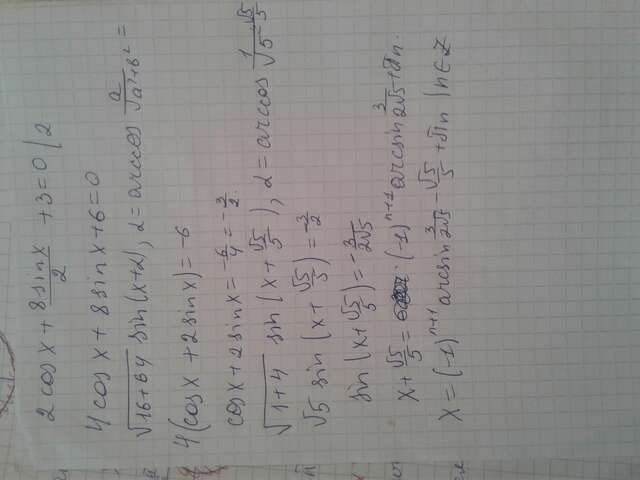 2 cos x + 8 sin x / 2 + 3 = 0 | 2
4 cos x + 8 sin x + 6 = 0
√16+64 sin (x+α), α = arccos a/√a²+b² =
4 (cos x + 2 sin x) = -6
cos x + 2 sin x = -6/4 = -3/2.
√1+4 sin (x + √5/5), α = arccos 1/√5 = √5/5
√5 sin (x + √5/5) = -3/2
sin (x + √5/5) = -3/2√5
x + √5/5 = (-1)ⁿ⁺¹ arcsin 3/2√5 + πn.
x = (-1)ⁿ⁺¹ arcsin 3/2√5 - √5/5 + πn | n ∈ Z